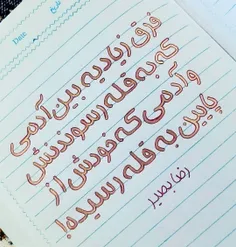 Date
تاریخ
فرق زیادیه بین آدمی
که به قله رسوندنش
و آدمی که خودش از
پایین به قله رسیده!
رضا بصیر